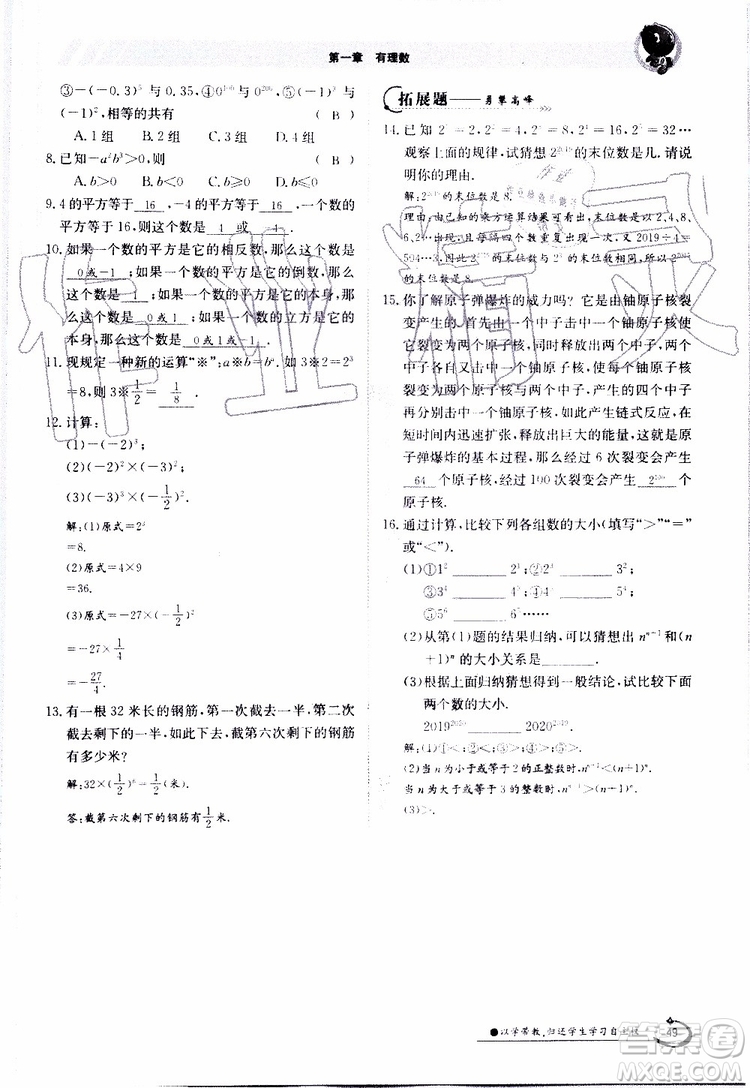 第一章 有理数
③-(-0.3)⁵与0.35,④0¹⁰⁰与0²⁰⁰,⑤(-1)³与
-(-1)²,相等的共有 ( B )
A.1组 B.2组 C.3组 D.4组
8.已知-a²b³>0,则 ( A )
A.b<0 B.b>0 C.b≤0 D.b≥0
9.4的平方等于 16 ,-4的平方等于 16 ,一个数的
平方等于16,则这个数是 4 或 -4 .
10.如果一个数的平方是它的相反数,那么这个数
是 0或-1 ;如果一个数的平方是它的倒数,那么
这个数是 1 ;如果一个数的平方是它本身,那么
这个数是 0或1 ;如果一个数的立方是它本身,
那么这个数是
11.现规定一种新的运算“※”:a※b=bᵃ,如3※2=2³
=8,则3※1/2= 1/8 .
12.计算:
(1)-(-2)³;
(2)(-2)²×(-3)²;
(3)(-3)³×(-1/2)².
解:(1)原式=2³
=8.
(2)原式=4×9
=36.
(3)原式=-27×(-1/2)²
=-27×1/4
=-27/4.
13.有一根32米长的钢筋,第一次截去一半,第二次
截去剩下的一半,如此截下去,截第六次剩下的钢筋
有多少米?
解:32×(1/2)⁶=1/2(米).
答:截第六次剩下的钢筋有1/2米.
拓展题——勇攀高峰
14.已知2¹=2,2²=4,2³=8,2⁴=16,2⁵=32…
观察上面的规律,试猜想2²⁰¹⁹的末位数是几,请说
明你的理由.
解:2²⁰¹⁹的末位数是8.
理由:由已知的乘方运算结果可看出,末位数以2,4,8,
6,2…出现,且每隔四个数重复出现以2019÷4=
504…3,2²⁰¹⁹的末位数与2³的末位数相同,所以2²⁰¹⁹
的末位数是8.
15.你了解原子弹爆炸的威力吗?它是由铀原子核裂
变产生的.首先由一个中子击中一个铀原子核,
使其裂变为两个原子核,同时释放出
能量和两个中子,然后,使每个铀原子核
裂变为两个原子核与两个中子,所产生的中子
再分别击中一个铀原子核,如此产生链式反应,在
短时间内迅速扩张,释放出巨大的能量,这就是
原子弹爆炸的基本过程,那么经过6次裂变会产生
64 个原子核.经过100次裂变会产生 2¹⁰⁰ 个
原子核.
16.通过计算,比较下列各组数的大小(填写“>”“=”
或“<”).
(1)①1² ______ 2¹;②2³ ______ 3²;
③3⁴ ______ 4³;④4⁵ ______ 5⁴;
⑤5⁶ ______ 6⁵……
(2)从第(1)题的结果归纳,可以猜想出nⁿ⁺¹和(n
+1)ⁿ的大小关系是______.
(3)根据上面归纳猜想的一般结论,试比较下面
两个数的大小.
2019²⁰²⁰ ______ 2020²⁰¹⁹.
解:(1)①<;②<;③>;④>;⑤>.
(2)当n为小于或等于2的正整数时,nⁿ⁺¹<(n+1)ⁿ;
当n为大于或等于3的整数时,nⁿ⁺¹>(n+1)ⁿ.
(3)>.
●以学带教,归还学生学习自主权
49
作业精灵
答案圈
MXQE.COM